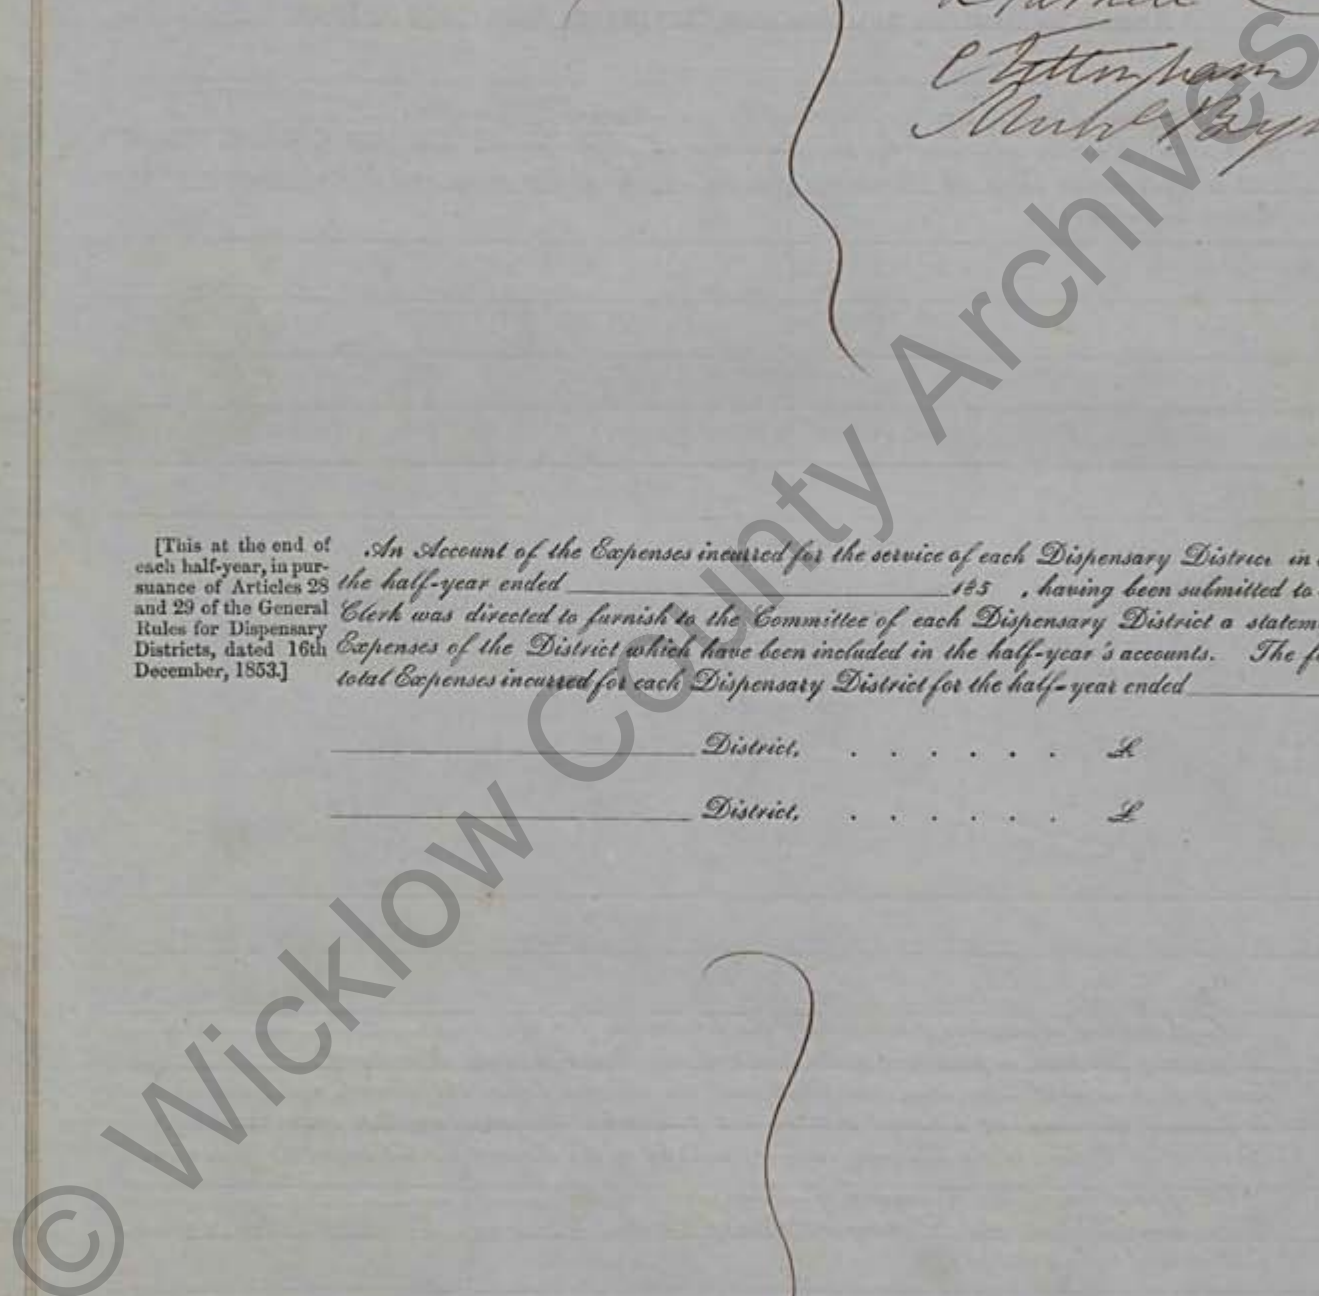 C Tottenham
[This at the end of
each half-year, in pur-
suance of Articles 28
and 29 of the General
Rules for Dispensary
Districts, dated 16th
December, 1853.]
An Account of the Expenses incurred for the service of each Dispensary District in
the half-year ended 185 , having been submitted to
Clerk was directed to furnish to the Committee of each Dispensary District a statem
Expenses of the District which have been included in the half-year's accounts. The f
total Expenses incurred for each Dispensary District for the half-year ended
District, . . . . . . £
District, . . . . . . £
© Wicklow County Archives